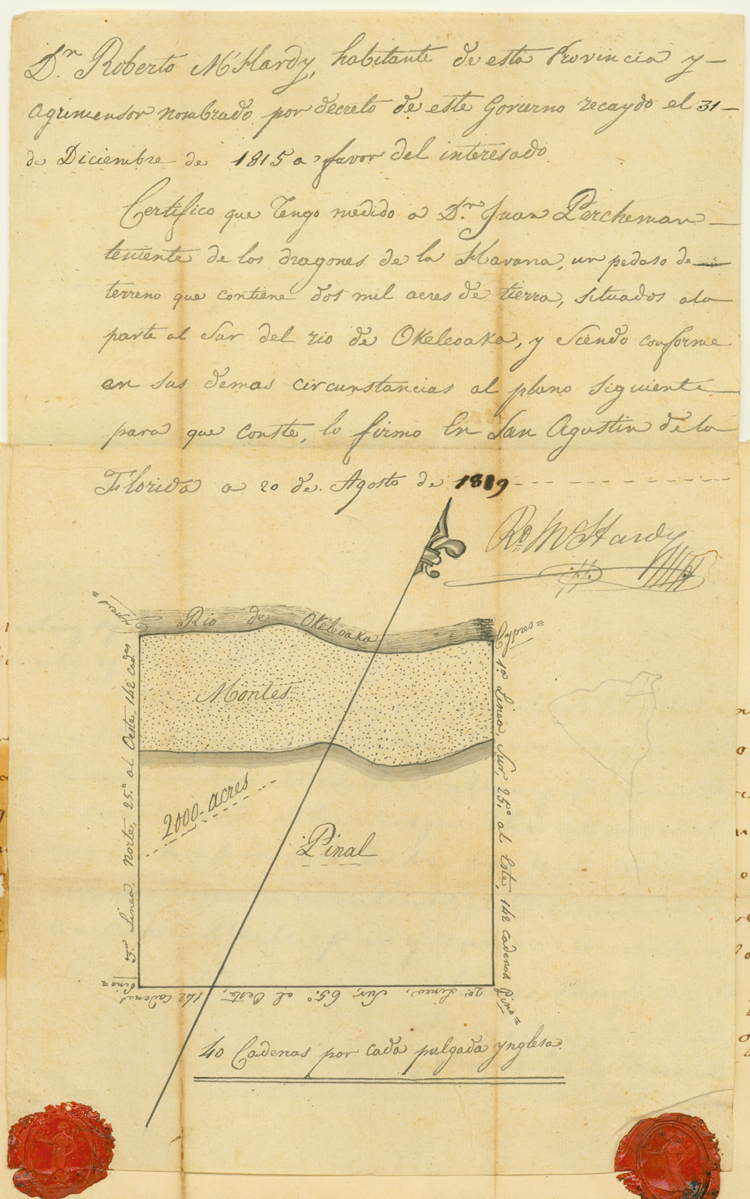 Dn. Roberto McHardy, habitante de esta Provincia y
Agrimensor nombrado por decreto de este Govierno recaydo el 31
de Diciembre de 1815 a favor del interesado
Certifico que Tengo medido a Dn. Juan Percheman
teniente de los dragones de la Havana, un pedaso de
terreno que contiene dos mil acres de tierra, situados a la
parte al Sur del rio de Okeleoaka, y Siendo conforme
en sus demas circunstancias al plano Siguiente
para que conste, lo firmo En San Agustin de la
Florida a 20 de Agosto de 1819
Ro. McHardy
Rio de Okeleoaka
Cypres
Montes
2000 acres
Pinal
1a. Linea, Sur, 25o. al Este, 142 cadenas
Pino
2a. Linea, Sur, 65o. al Oeste, 142 Cadenas
Pino
3a. Linea, Norte, 25o. al Oeste, 142 cadas
40 Cadenas por cada pulgada ynglesa.